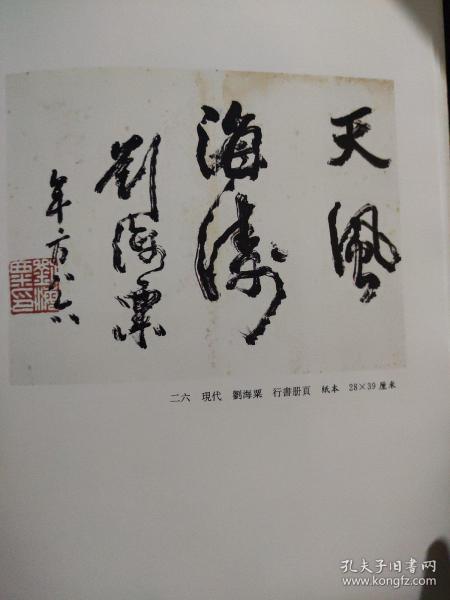 天風
海濤
劉海粟
年方八六
劉海粟印
二六 現代 劉海粟 行書册頁 紙本 28×39厘米
孔夫子旧书网
www.kongfz.com